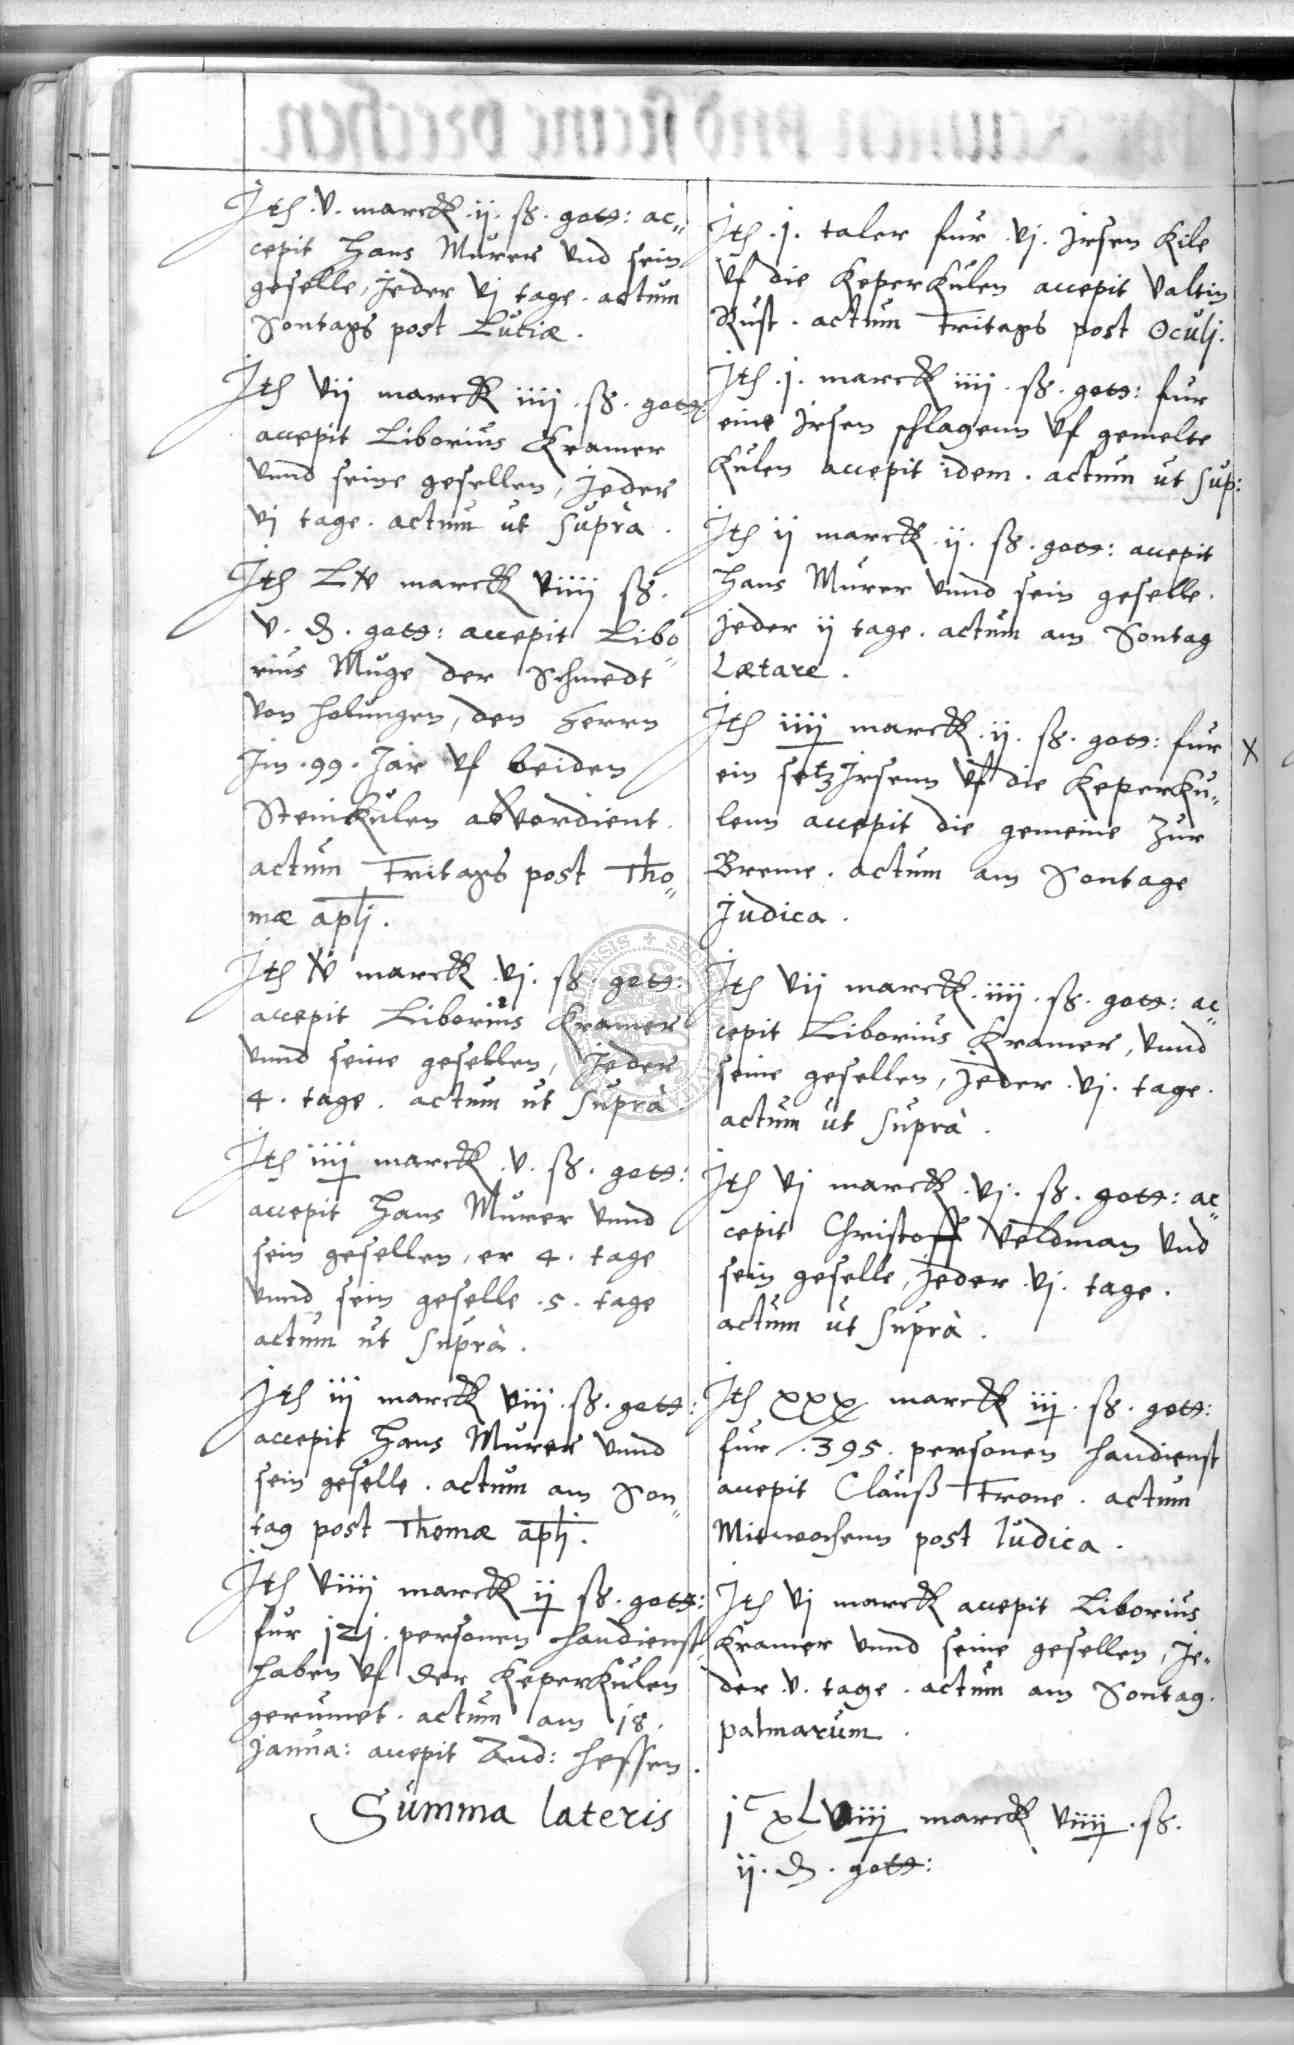 Jtem .v. marck .ij. ß. gott: ac„
cepit Hans Murer vnd sein
geselle, Jeder vj tage . actum
Sontags post Luciæ .
Jtem vij marck iiij . ß . gott:
accepit Liborius Kramer
vnnd seine gesellen, Jeder
vj tage . actum ut suprà .
Jtem Lv marck viiij ß.
v. d. gott: accepit Libo„
rius Muge der Schmedt
von holungen, den herrn
Jm .99. Jar vf beiden
Steinkulen abverdient.
actum Fritags post Tho„
mæ apli .
Jtem xv marck .vj. ß. gott:
accepit Liborius Kramer
vnnd seine gesellen, Jeder
4. tage . actum ut suprà
Jtem iiij marck .v. ß. gott:
accepit Hans Murer vnnd
sein gesellen, er 4. tage
vnnd sein geselle .5. tage
actum ut suprà .
Jtem iij marck viij . ß. gott:
accepit Hans Murer vnnd
sein geselle . actum am Son„
tag post Thomæ apli .
Jtem viiij marck ij ß. gott:
fur 121. personen handienst
haben vf der Keperkulen
gerumet . actum am 18.
Janua: accepit And: Hessen .
Summa lateris
Jtem .j. taler fur .vj. Jrsen Kile
vf die Keperkulen accepit Valtin
Rust . actum Fritags post Oculj.
Jtem .j. marck iiij . ß. gott: fur
eine Jrsen schlagenn vf gemelte
Kulen accepit idem . actum ut sup:
Jtem ij marck .ij. ß. gott: accepit
Hans Murer vnnd sein geselle.
Jeder ij tage . actum am Sontag
Lætare .
Jtem iiij marck .ij. ß. gott: fur X
ein setz Jrsenn vf die Keperku„
lenn accepit die gemeine Zur
Breme . actum am Sontage
Judica .
Jtem vij marck .iiij. ß. gott: ac„
cepit Liborius Kramer, vnnd
seine gesellen, Jeder .vj. tage.
actum ut suprà .
Jtem vj marck .vj. ß. gott: ac„
cepit Christoff Veldman vnd
sein geselle, Jeder .vj. tage .
actum ut suprà .
Jtem xxx marck iij . ß. gott:
fur .395. personen handienst
accepit Clauß Frone . actum
Mitwochenn post Iudica .
Jtem vj marck accepit Liborius
Kramer vnnd seine gesellen, Je„
der .v. tage . actum am Sontag.
palmarum .
jC xLviiij marck viiij . ß.
ij. d. gott: